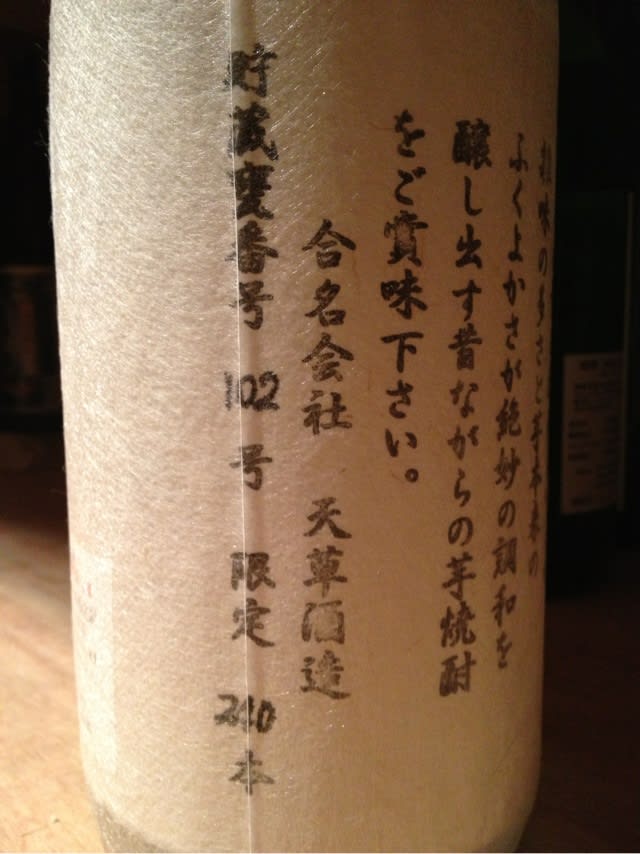 味の さと芋本来の
ふくよかさが絶妙の調和を
醸し出す昔ながらの芋焼酎
をご賞味下さい。
合名会社 天草酒造
貯蔵甕番号 102 号 限定 240 本